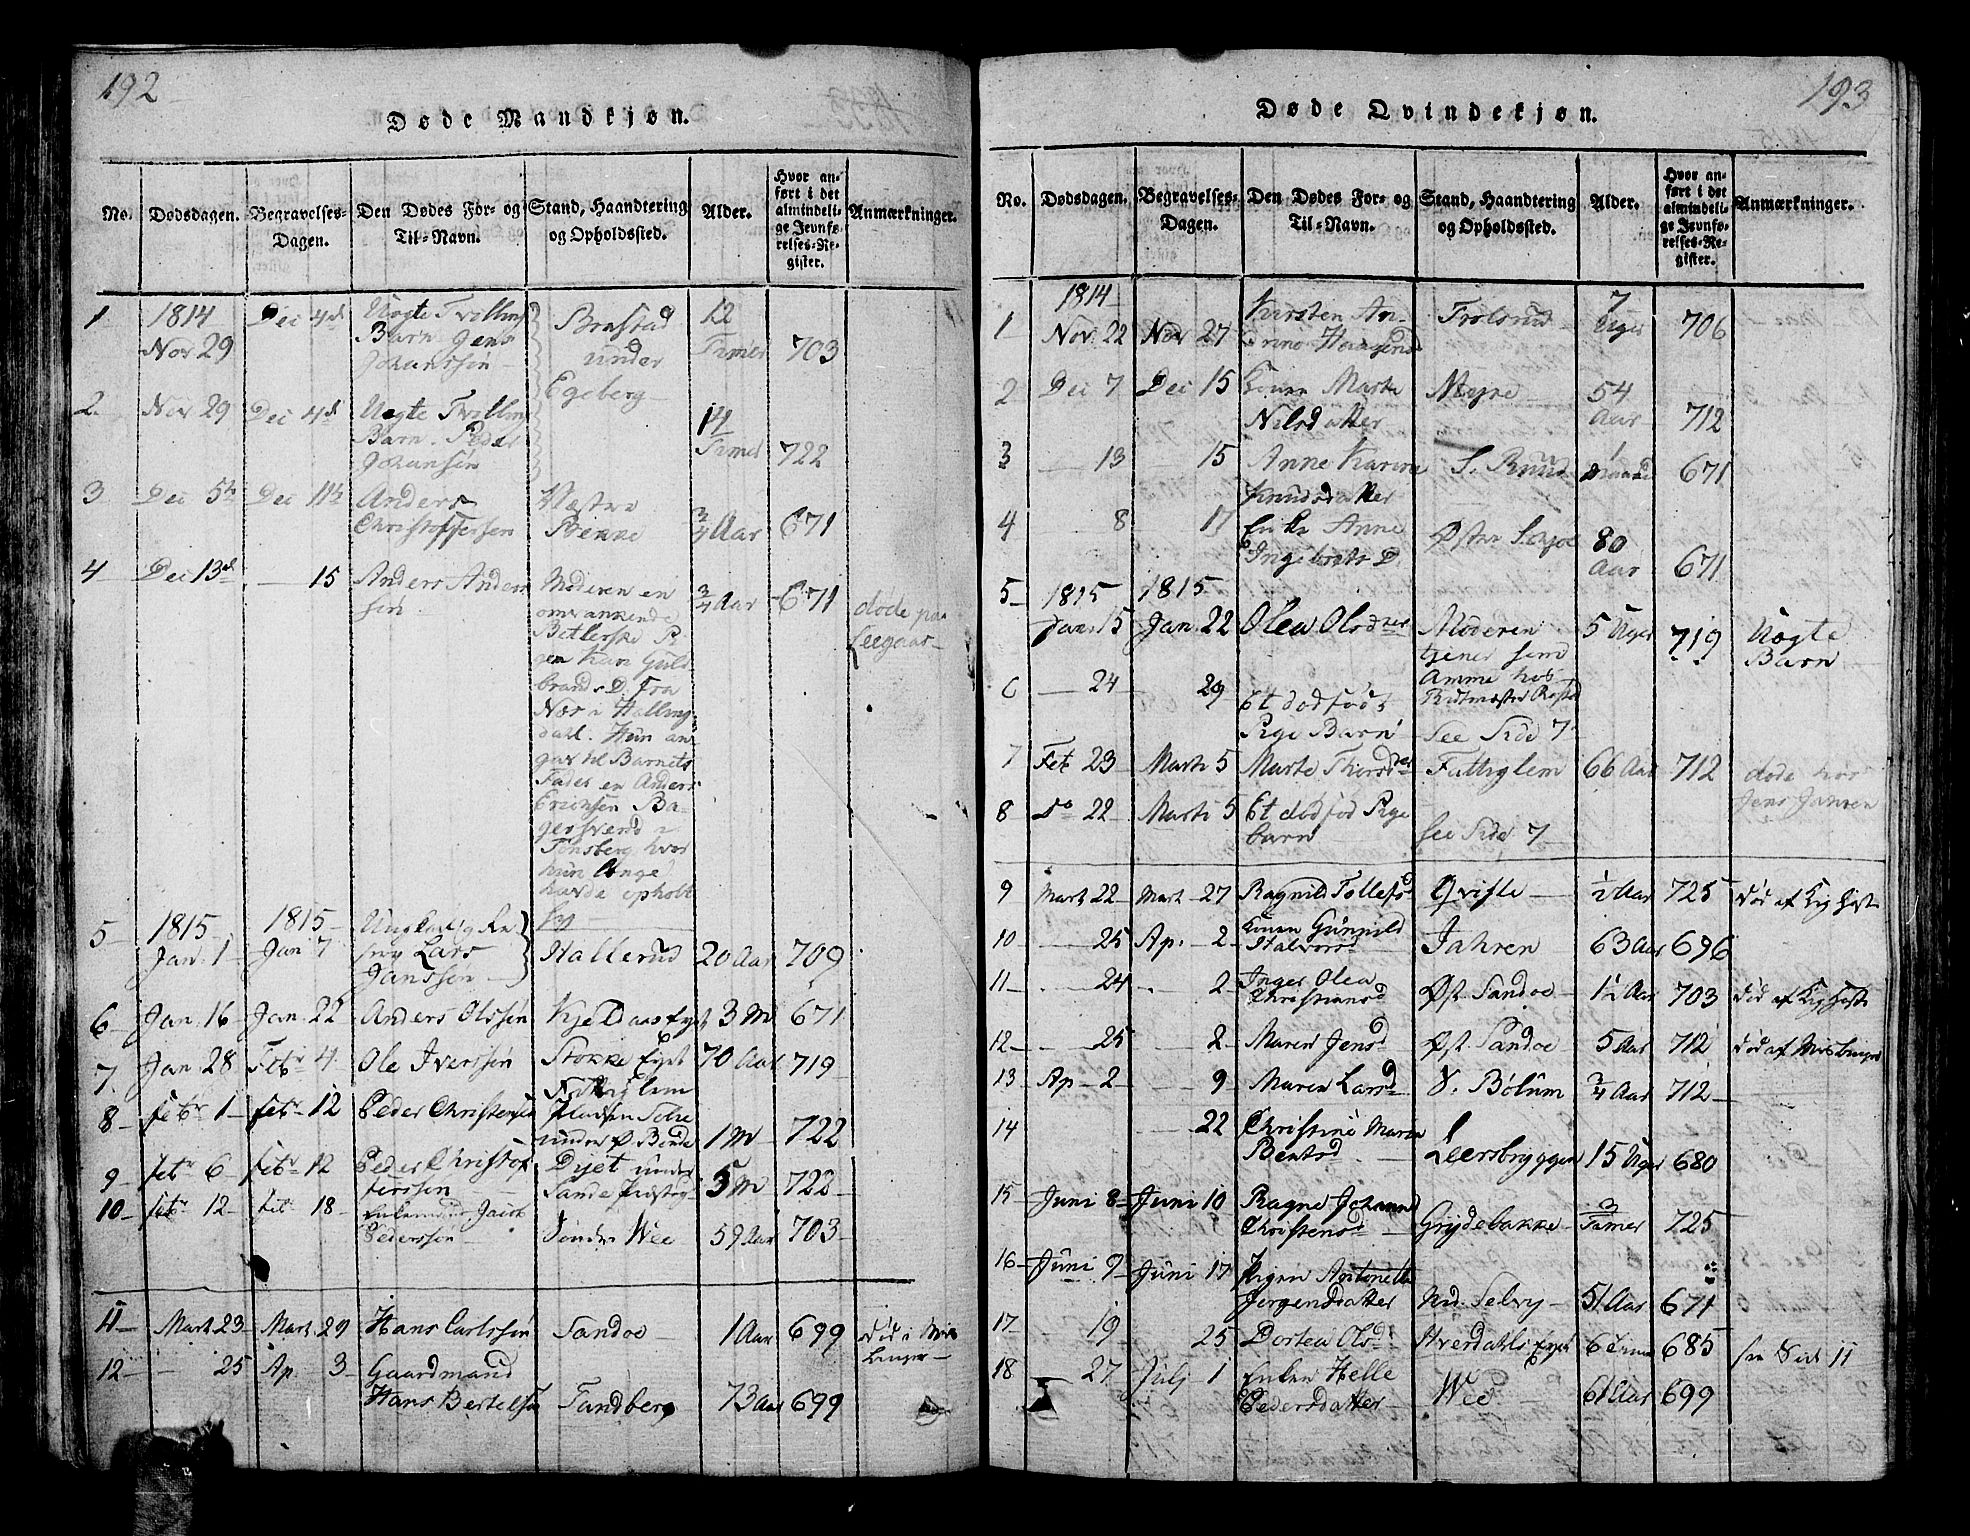 192
Døde Mandkjøn.
No. Dødsdagen. Begravelses-Dagen. Den Dødes For- og Til-Navn. Stand, Haandtering og Opholdssted. Alder. Hvor anført i det almindelige Jevnførelses-Register. Anmærkninger.
1 1814 Nov 29 Dec 4de Uægte Tvilling
Barn Jens
Johanssøn
Brastad
under
Egeberg
12
Timer 703
2. Nov 29 Dec 4de Uægte Tvilling
Barn. Peder
Johansøn
14
Timer 722
3 Dec 5te Dec 11te Anders
Christoffersøn
Væstre
Benne
3/4 Aar 671
4 Dec 13de 15 Anders Anders
søn
Moderen en
omvankende
Betlerske Pi
gen Kari Guld
brands D. fra
Næs i Halling
dahl. Hun an
gav til Barnets
Fader en Anders
Ericksen Ba
gersvend i
Tønsberg hvor
hun længe
havde opholdt
sig
3/4 Aar 671 døde paa
Leegaar
5 1815 Jan. 1 1815 Jan 7 Ungkarl og
Lars
Janssøn
Hallerud 20 Aar 709
6 Jan. 16 Jan. 22 Anders Olssøn Kjeldaas Eyet 3 M 671
7 Jan 28 Febr 4. Ole Iverssøn Stokke Eyet 70 Aar 719
8 Febr 1 Febr 12 Peder Christensen Fattiglem
Pladsen
under Ø. Bende 1 M 722
9 Febr 6 Febr 12 Peder Christof
ferssøn
Dyet under
Sande Præsteg 5 M 722
10 Febr 12 Febr 18 Enkemand Jacob
Pederssøn
Søndre Wee 59 Aar 703
11 Mart 23 Mart 29 Hans Carlssøn Sandoe 1 Aar 699 død i Mæs
linger
12 25 Ap. 3 Gaardmand
Hans Bertelsen Sandberg 73 Aar 699
193
Døde Qvindekjøn.
No. Dødsdagen. Begravelses-Dagen. Den Dødes For- og Til-Navn. Stand, Haandtering og Opholdssted. Alder. Hvor anført i det almindelige Jevnførelses-Register. Anmærkninger.
1 1814 Nov. 22 Nov 27 Kirsten An
Haagensd
Trolsrud 7
Uger 706
2 Dec 7 Dec 15 Konen Marte
Nilsdatter
Meyre 54
Aar 712
3 13 15 Anne Karine
Knudsdatter
S. Ruud 1
Maaned 671
4 8 17 Enke Anne
Ingebrets D.
Østre 80
Aar 671
5 1815 Jan. 15 1815 Jan. 22 Olea Olsdter Moderen
tjener som
Amme hos
Ritmester
5 Uger 719 Uægte
Barn
6 24 29 Et dødfødt
Pige Barn
See Side 7
7 Feb 23 Marti 5 Marte Thorsdter Fattiglem 66 Aar 712 døde hos
Jens Jansen
8 Do 22 Marti 5 Et dødfød Pige
barn
See Side 7
9 Mart 22 Mart 27 Ragnild Tollefsd Qvisle 1/2 Aar 725 død af Kighoste
10 25 Ap. 2 Konen Gunnild
Halvorsd
Jahren 63 Aar 696
11 24 2 Inger Olea
Christiansd
Øst. Sandoe 1 1/2 Aar 703 død af Kighoste
12 25 2 Maren Jensd Øst Sandoe 5 Aar 712 død af Meslinger
13 Ap 2 9 Maren Larsd V. Bølum 3/4 Aar 712
14 22 Christine Maria
Bentsd
Leersbryggen 15 Uger 680
15 Juni 8 Juni 10 Ragne Johann
Christensd
Grydebakke 3
Timer 725
16 Juni 9 Juni 17 Pigen Antonette
Jørgensdatter
Nd. Selvy 51 Aar 671
17 19 25 Dortea Olsd Hverdahls Eyet 6 Timer 685 see Side 11
18 27 Julj 1 Enken Helle
Pedersdatter
Wee 61 Aar 699